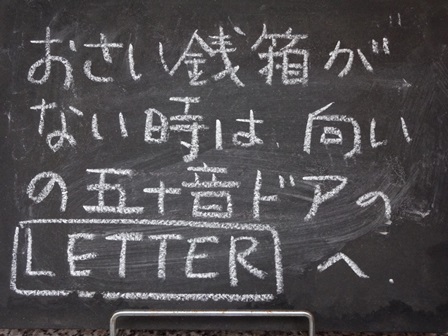 おさい銭箱が
ない時は、向い
の五十音ドアの
LETTER へ.